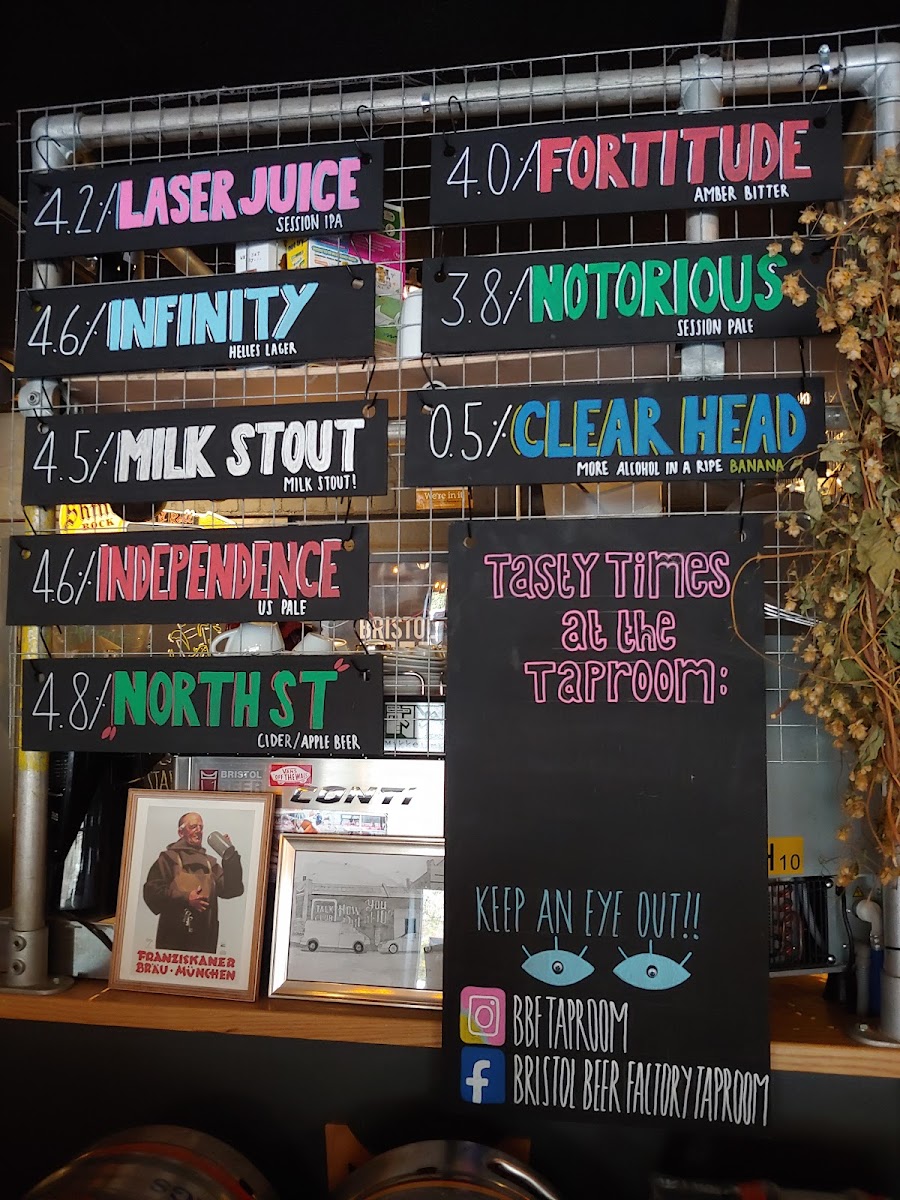 4.2% LASER JUICE
SESSION IPA
4.6% INFINITY
HELLES LAGER
4.5% MILK STOUT
MILK STOUT!
4.6% INDEPENDENCE
US PALE
4.8% NORTH ST
CIDER/APPLE BEER
4.0% FORTITUDE
AMBER BITTER
3.8% NOTORIOUS
SESSION PALE
0.5% CLEAR HEAD
MORE ALCOHOL IN A RIPE BANANA
We're in it
ROCK
BRISTOL
TASTY TIMES
at the
TAPROOM:
KEEP AN EYE OUT!!
BBF TAPROOM
BRISTOL BEER FACTORY TAPROOM
BRISTOL
VANS
"OFF THE WALL"
CONTI
FRANZISKANER
BRÄU · MÜNCHEN
TALK
HOW
YOU
H10